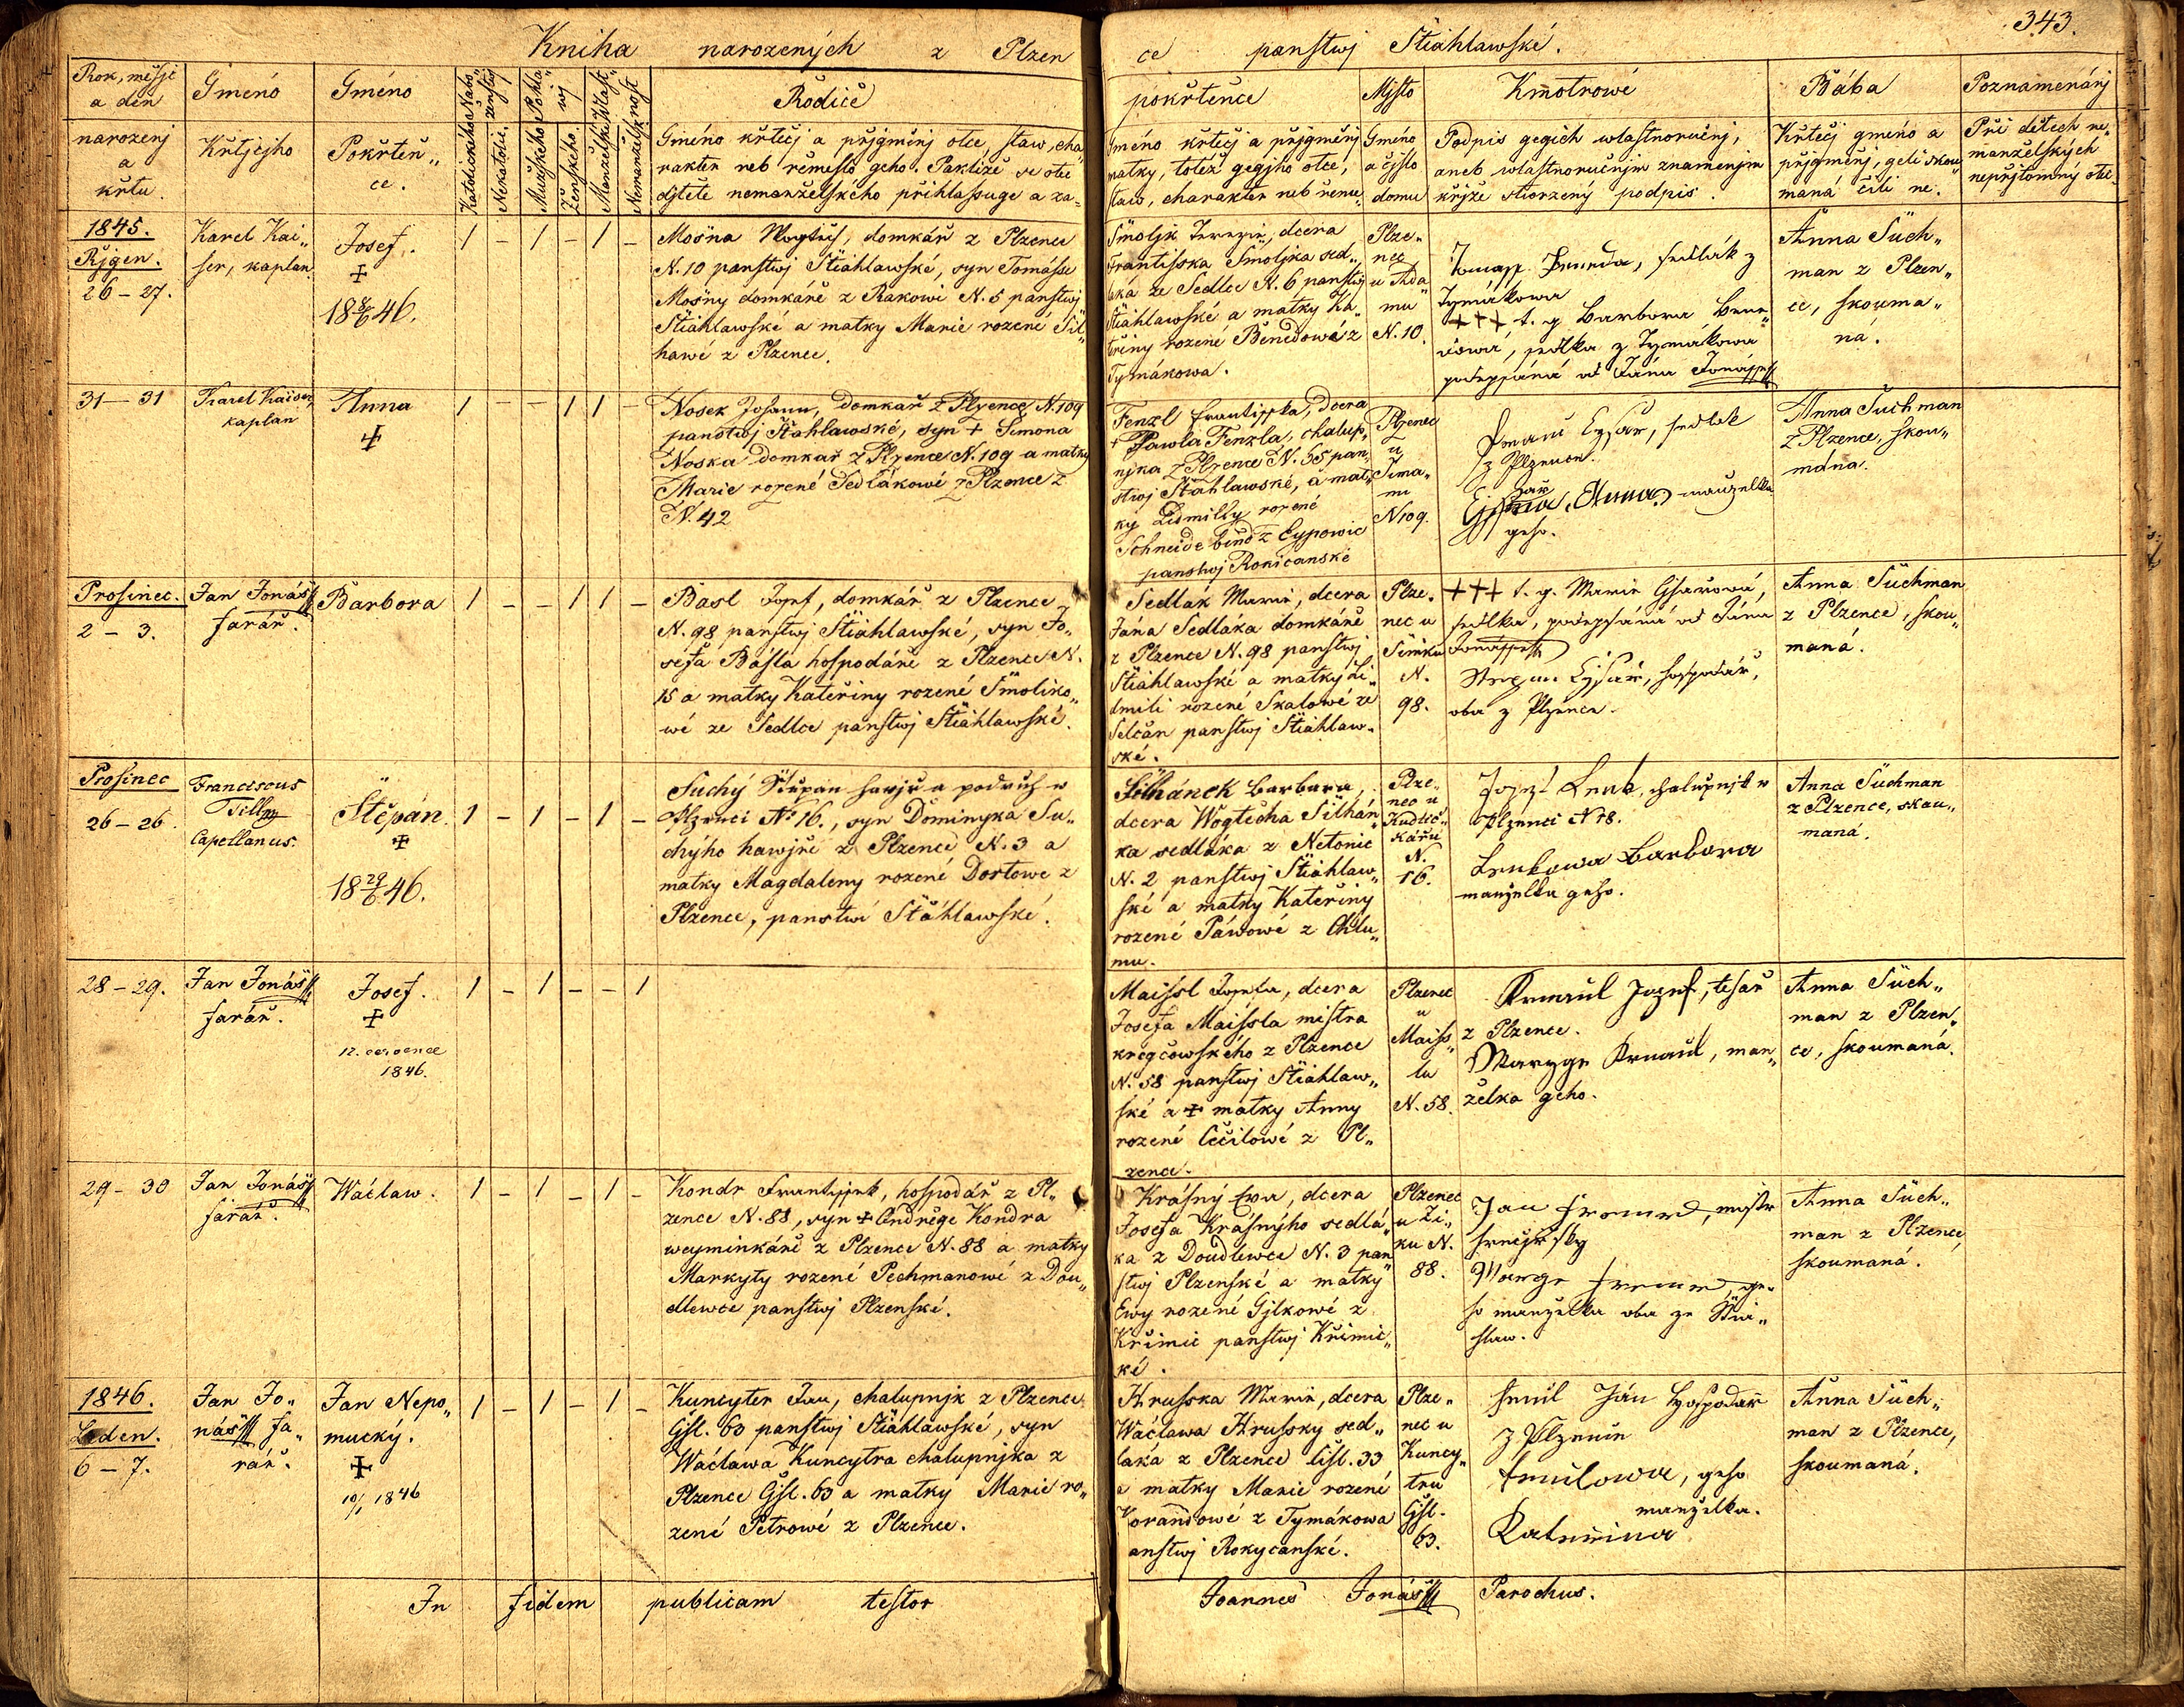 343.
Kniha narozených z Plzen
ce panstwj Stiahlawské.
Rok, měsjc
a den
narozenj
a
křtu
Gméno
Křtjcjho
Gméno
Pokřtěn„
ce.
Katolického
Nekatolic.
Mužského
Ženského.
Manželsk.
Nemanžels.
Rodiče
Gméno křtěcj a přjgměnj otce, staw, cha„
rakter neb řemeslo geho. Pakliže se otec
djtěte nemanželského přihlassuge a za=
pokřtěnce
Gméno křtěcj a přjgměnj
matky, totéž gegjho otce,
staw, charakter neb řeme.
Mjsto
Gméno
a čjslo
domu
Kmotrowé
Podpis gegich wlastnoručnj,
aneb wlastnoručnjm znamenjm
křjže stwrzený podpis.
Bába
Křtěcj gméno a
přjgměnj, geli skou„
maná čili ne.
Poznamenánj
Při dětech ne„
manželských
nepřjtomný otec
1845.
Řjgen.
26 – 27.
Karel Kai„
ser, kaplan.
Josef.
+
18 8/6 46.
1 – 1 – 1 –
Mošna Wogtěch, domkář z Plzence
N. 10 panstwj Stiahlawské, syn Tomásse
Mošny domkáře z Rakowi N. 5 panstwj
Stiahlawské a matky Marie rozené Sil„
hawé z Plzence.
Smoljk Terezie, dcera
Frantisska Smoljka sed„
láka ze Sedlce N. 6 panstwj
Stiahlawské a matky Ka„
teřiny rozené Benedowé z
Tymákowa.
Plze„
nec
u Ada„
mu
N. 10.
Tomass Beneda, sedlák z
Tymákowa
+++ t. g. Barbora Bene„
dowá, sedlka z Tymákowa
podepsána od Jána Jonásse
Anna Such„
man z Plzen„
ce, skouma„
ná.
31 – 31
Karel Kaiser,
kaplan
Anna
+
1 – – 1 1 –
Nosek Johann, domkař z Plzence N. 109
panstwj Štahlawské, syn + Simona
Noska domkař z Plzence N. 109 a matky
Marie rozené Sedlákowé z Plzence
N. 42
Fenzl Frantisska, dcera
+ Pawla Fenzla, chalup„
njka z Plzence N. 55 pan„
stwj Štahlawské, a mat„
ky Lidmilly rozené
Schneide bind z Eypowic
panstwj Rokicanské
Plzenec
u
Sima„
nu
N 109.
Eysar, sedlak
z Plzence.
Anna, manzelka
geho.
Anna Suchman
z Plzence, skou„
mána.
Prosinec.
2 – 3.
Jan Jonáss
farář.
Barbora
1 – – 1 1 –
Basl Josef, domkář z Plzence
N. 98 panstwj Stiahlawské, syn Jo„
sefa Básla hospodáře z Plzence N.
15 a matky Kateřiny rozené Smoliko„
wé ze Sedlce panstwj Stiahlawské.
Sedlák Marie, dcera
Jána Sedláka domkáře
z Plzence N. 98 panstwj
Stiahlawské a matky Li„
dmili rozené Skalowé ze
Selčan panstwj Stiahlaw„
ské.
Plze„
nec u
Šimku
N.
98.
+++ t. g. Marie Gsarowá,
sedlka, podepsána od Jána
Jonásse
Eysar, hospodár,
oba z Plzence.
Anna Suchman
z Plzence, skou„
maná.
Prosinec
26 – 26.
Franciscus
Tilly
Capellanus.
Štěpán.
+
18 29/6 46.
1 – 1 – 1 –
Suchý Štěpan hawjř a podruh w
Plzenci No 16., syn Dominyka Su„
chýho hawjře z Plzence N. 3 a
matky Magdaleny rozené Dortowe z
Plzence, panstwí Stáhlawské.
Silhánek Barbara,
dcera Wogtěcha Silhán„
ka sedláka z Netonic
N. 2 panstwj Stiahlaw„
ské a matky Kateřiny
rozené Páwowé z Chlu„
mu.
Plze„
nec u
Kudlič„
kářu
N.
16.
Josef Lenk, chalupnjk w
Plzenci N 78.
Lenkowa Barbora
manzelka geho.
Anna Suchman
z Plzence, skau„
maná.
28 – 29.
Jan Jonáss
farář.
Josef.
+
12. cervence
1846.
1 – 1 – – 1
Maissl Josefa, dcera
Josefa Maissla mistra
kregčowského z Plzence
N. 58 panstwj Stiahlaw„
ské a + matky Anny
rozené Cečilowé z Pl„
zence.
Plzenec
u
Maiss„
lu
N. 58.
Josef, tesař
z Plzence.
Maryge, man„
želka geho.
Anna Such„
man z Plzen„
ce, skoumaná.
29 – 30
Jan Jonáss
farář.
Wáclaw.
1 – 1 – 1 –
Kondr Frantissek, hospodář z Pl„
zence N. 88, syn + Ondřege Kondra
weyminkáře z Plzence N. 88 a matky
Markyty rozené Pechmanowé z Dou„
dlewce panstwj Plzenské.
Krásný Ewa, dcera
Josefa Krásnýho sedlá„
ka z Doudlewce N. 3 pan„
stwj Plzenské a matky
Ewy rozené Gjlkowé z
Křimic panstwj Křimic„
ké.
Plzenec
u Zi„
ku N.
88.
Jan Fremr, mistr
Marge Fremr, ge„
ho manzelka oba ze Stia„
hlaw.
Anna Such„
man z Plzence,
skoumaná.
1846.
Leden.
6 – 7.
Jan Jo„
náss fa„
rář.
Jan Nepo„
mucký.
+
10/1 1846
1 – 1 – 1 –
Kuncyter Jan, chalupnjk z Plzence
Čjsl. 63 panstwj Stiahlawské, syn
Wáclawa Kuncytra chalupnjka z
Plzence Čjsl. 63 a matky Marie ro„
zené Petrowé z Plzence.
Hrusska Marie, dcera
Wáclawa Hrussky sed„
láka z Plzence čisl. 33
a matky Marie rozené
Korandowé z Tymákowa
anstwj Rokycanské.
Plze„
nec u
Kuncy„
tru
Čjsl.
63.
Jan hospodář
z Plzence
geho
manzelka.
Kateřina
Anna Such„
man z Plzence,
skoumaná.
In fidem publicam testor
Joannes Jonáss Parochus.